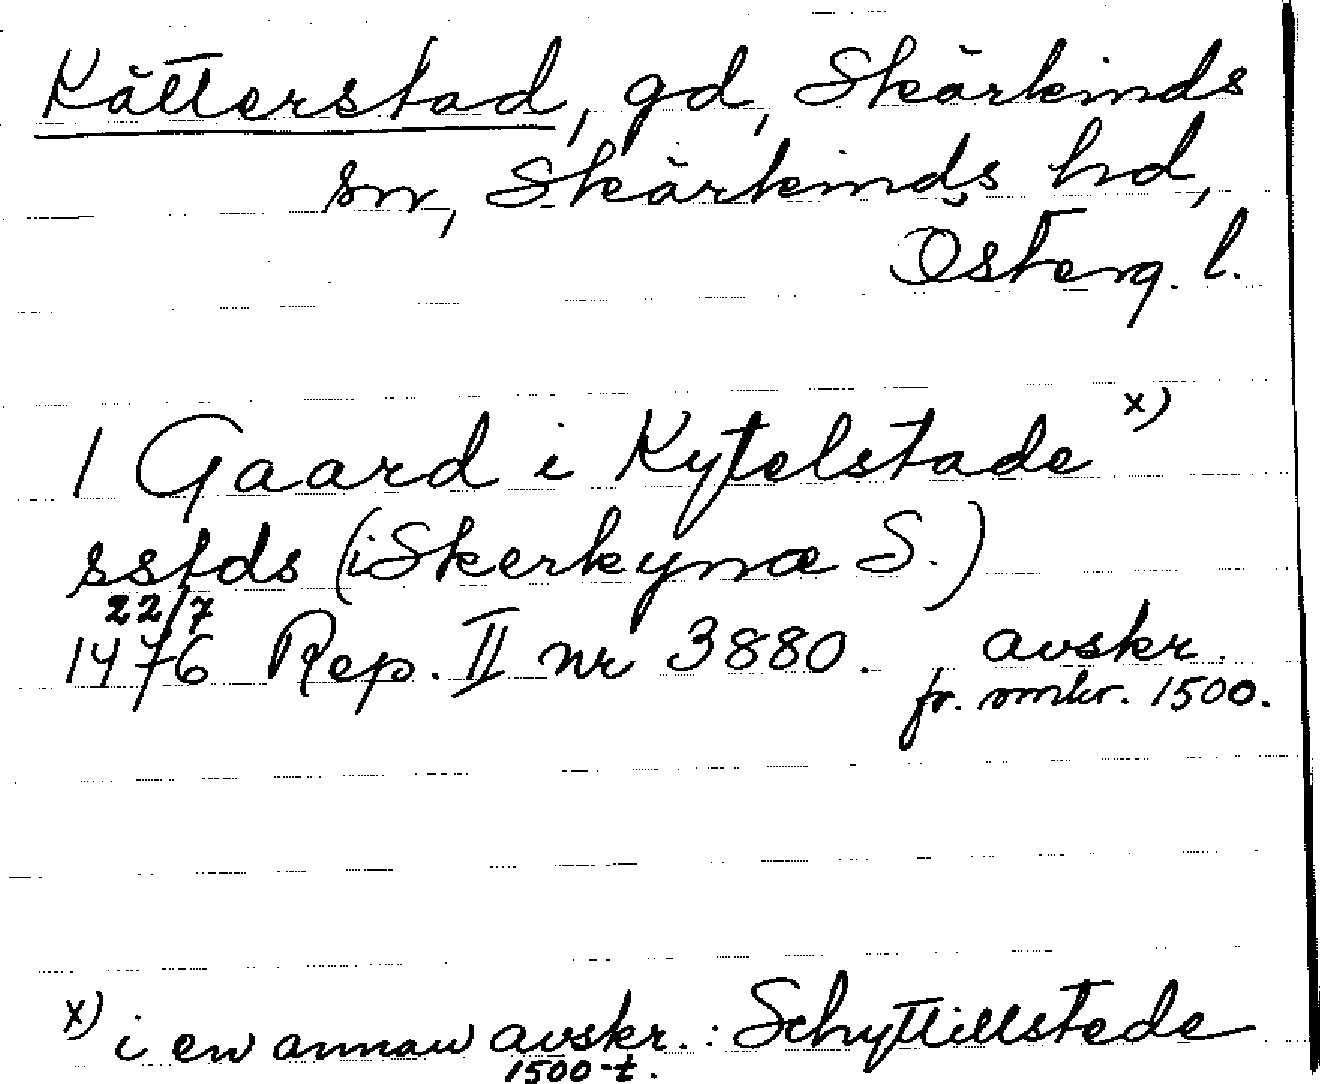 Kätterstad, gd, Skärkinds
sn, Skärkinds hd,
Österg. l.
1 Gaard i Kytelstade x)
sstds (i Skerkynæ S.)
22/7
1476 Rep. II nr 3880. avskr.
fr. omkr. 1500.
x) i en annan avskr. : Schyttillstede
1500-t.